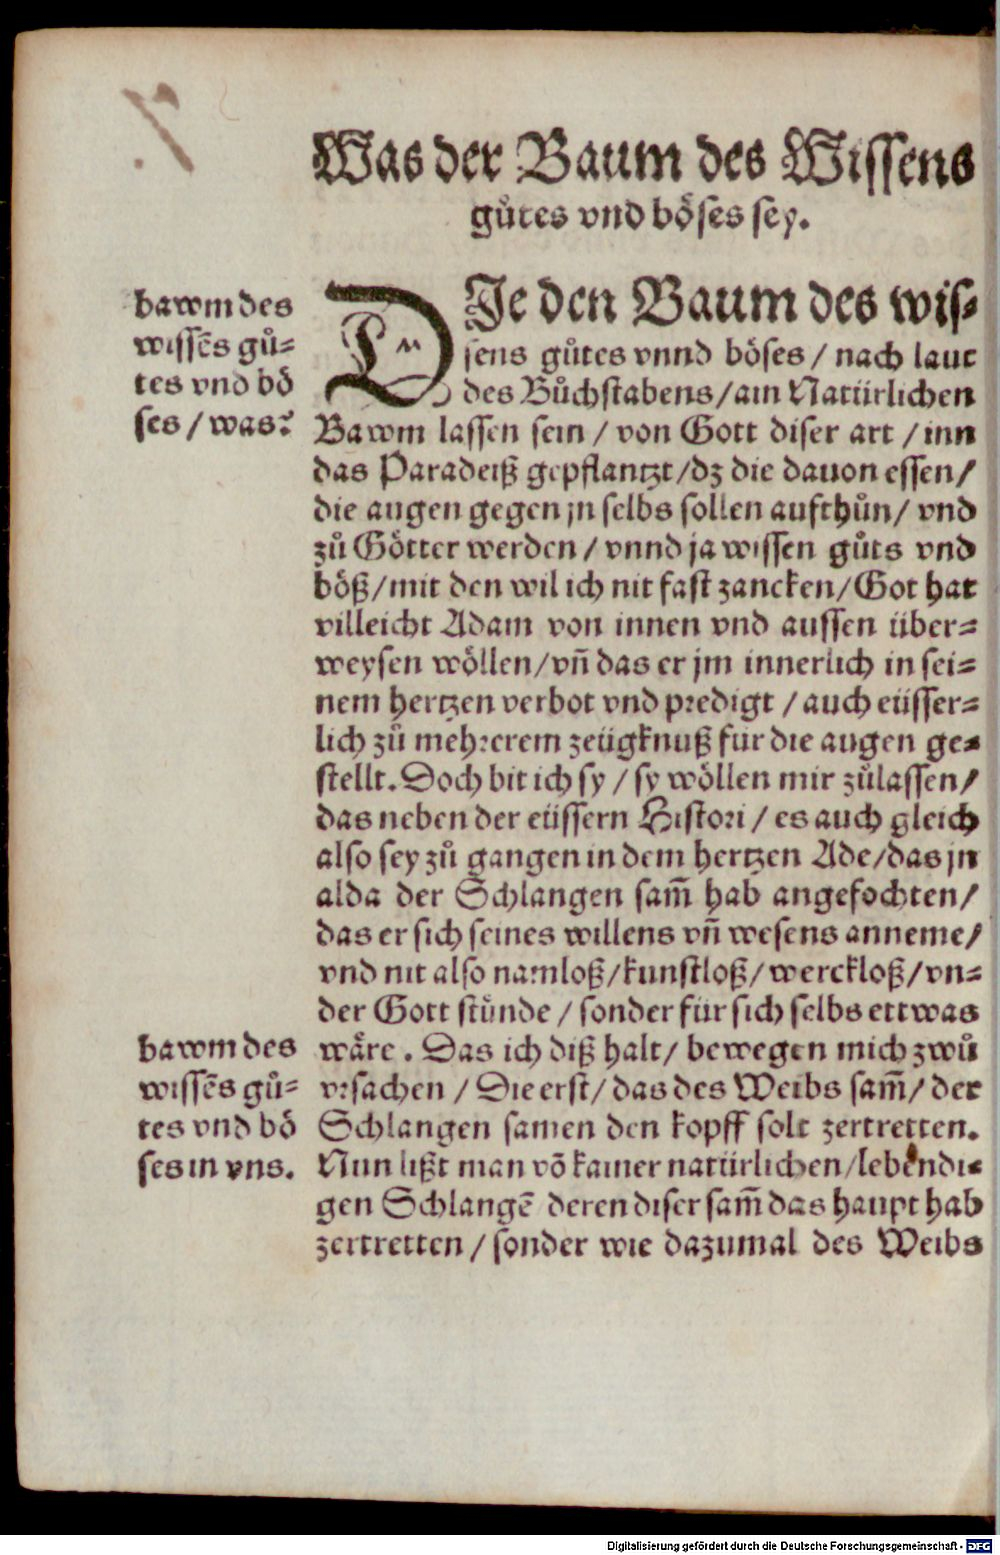 Was der Baum des Wissens
gůtes vnd böses sey.
bawm des
wissēs gů=
tes vnd bö
ses / was?
DIe den Baum des wis=
sens gůtes vnnd böses / nach laut
des Bůchstabens / ain Natürlichen
Bawm lassen sein / von Gott diser art / inn
das Paradeiß gepflantzt / dz die dauon essen /
die augen gegen jn selbs sollen aufthůn / vnd
zů Götter werden / vnnd ja wissen gůts vnd
böß / mit den wil ich nit fast zancken / Got hat
villeicht Adam von innen vnd aussen über=
weysen wöllen / vñ das er jm innerlich in sei=
nem hertzen verbot vnd predigt / auch eüsser=
lich zů mehrerem zeügknuß für die augen ge=
stellt. Doch bit ich sy / sy wöllen mir zůlassen /
das neben der eüssern Histori / es auch gleich
also sey zů gangen in dem hertzen Ade / das jn
alda der Schlangen sam̄ hab angefochten /
das er sich seines willens vñ wesens anneme /
vnd nit also namloß / kunstloß / werckloß / vn=
der Gott stünde / sonder für sich selbs ettwas
bawm des
wissēs gů=
tes vnd bö
ses in vns.
wäre . Das ich diß halt / bewegen mich zwů
vrsachen / Die erst / das des Weibs sam̄ / der
Schlangen samen den kopff solt zertretten.
Nun lißt man vō kainer natürlichen / lebendi=
gen Schlangē deren diser sam̄ das haupt hab
zertretten / sonder wie dazumal des Weibs
Digitalisierung gefördert durch die Deutsche Forschungsgemeinschaft - DFG